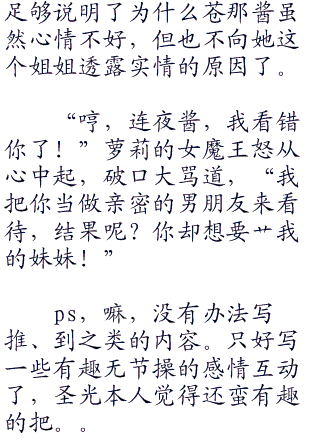 足够说明了为什么苍那酱虽
然心情不好，但也不向她这
个姐姐透露实情的原因了。
“哼，连夜酱，我看错
你了！”萝莉的女魔王怒从
心中起，破口大骂道，“我
把你当做亲密的男朋友来看
待，结果呢？你却想要艹我
的妹妹！”
ps，嘛，没有办法写
推、到之类的内容。只好写
一些有趣无节操的感情互动
了，圣光本人觉得还蛮有趣
的把。。